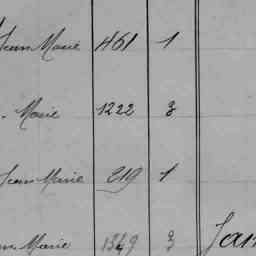 Jean Marie 461 1
Marie 1222 3
Jean Marie 219 1
Marie 1349 3